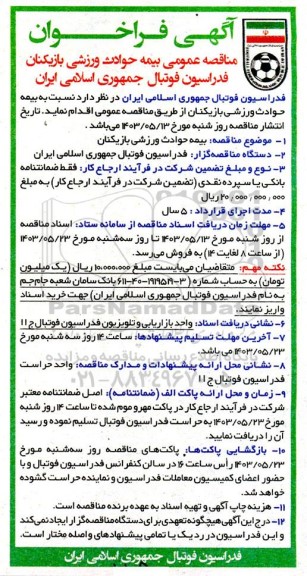 آگهی فراخوان
مناقصه عمومی بیمه حوادث ورزشی بازیکنان
فدراسیون فوتبال جمهوری اسلامی ایران
فدراسیون فوتبال جمهوری اسلامی ایران در نظر دارد نسبت به بیمه
حوادث ورزشی بازیکنان از طریق مناقصه عمومی اقدام نماید. تاریخ
انتشار مناقصه روز شنبه مورخ ۱۴۰۳/۰۵/۱۳ می‌باشد.
۱- موضوع مناقصه: بیمه حوادث ورزشی بازیکنان
۲- دستگاه مناقصه‌گزار: فدراسیون فوتبال جمهوری اسلامی ایران
۳- نوع و مبلغ تضمین شرکت در فرآیند ارجاع کار: فقط ضمانتنامه
بانکی یا سپرده نقدی (تضمین شرکت در فرآیند ارجاع کار) به مبلغ
۲۰,۰۰۰,۰۰۰,۰۰۰ ریال
۴- مدت اجرای قرارداد: ۵ سال
۵- مهلت زمان دریافت اسناد مناقصه از سامانه ستاد: اسناد مناقصه
از روز شنبه مورخ ۱۴۰۳/۰۵/۱۳ تا روز سه‌شنبه مورخ ۱۴۰۳/۰۵/۲۳
(از ساعت ۸ لغایت ۱۴) به فروش می‌رسد.
نکته مهم: متقاضیان می‌بایست مبلغ ۱۰،۰۰۰،۰۰۰ ریال (یک میلیون
تومان) به حساب شماره (۳-۱۹۱۹۵۱۹-۴۰-۶۱۱ بانک سامان شعبه جام جم
به نام فدراسیون فوتبال جمهوری اسلامی ایران) جهت خرید اسناد
واریز نمایند.
۶- نشانی دریافت اسناد: واحد بازاریابی و تلویزیون فدراسیون فوتبال ج ا ا
۷- آخرین مهلت تسلیم پیشنهادها: ساعت ۱۴ روز سه شنبه مورخ
۱۴۰۳/۰۵/۲۳ می باشد.
۸- نشانی محل ارائه پیشنهادات و مدارک مناقصه: واحد حراست
فدراسیون فوتبال ج ا ا
۹- زمان و محل ارائه پاکت الف (ضمانتنامه): اصل ضمانتنامه معتبر
شرکت در فرآیند ارجاع کار در پاکت مهر و موم شده تا ساعت ۱۴ روز شنبه
مورخ ۱۴۰۳/۰۵/۲۳ به حراست فدراسیون فوتبال تسلیم نموده و رسید
آن را دریافت نمایید.
۱۰- بازگشایی پاکت‌ها: پاکت‌های مناقصه روز سه‌شنبه مورخ
۱۴۰۳/۰۵/۲۳ رأس ساعت ۱۶ در سالن کنفرانس فدراسیون فوتبال و با
حضور اعضای کمیسیون معاملات فدراسیون و نماینده حراست گشوده
خواهد شد.
۱۱- هزینه چاپ آگهی و تهیه اسناد به عهده برنده مناقصه است.
۱۲- درج این آگهی هیچگونه تعهدی برای دستگاه مناقصه گزار ایجاد نمی‌کند
و این فدراسیون در رد یک یا تمامی پیشنهادهای واصله مختار است.
فدراسیون فوتبال جمهوری اسلامی ایران